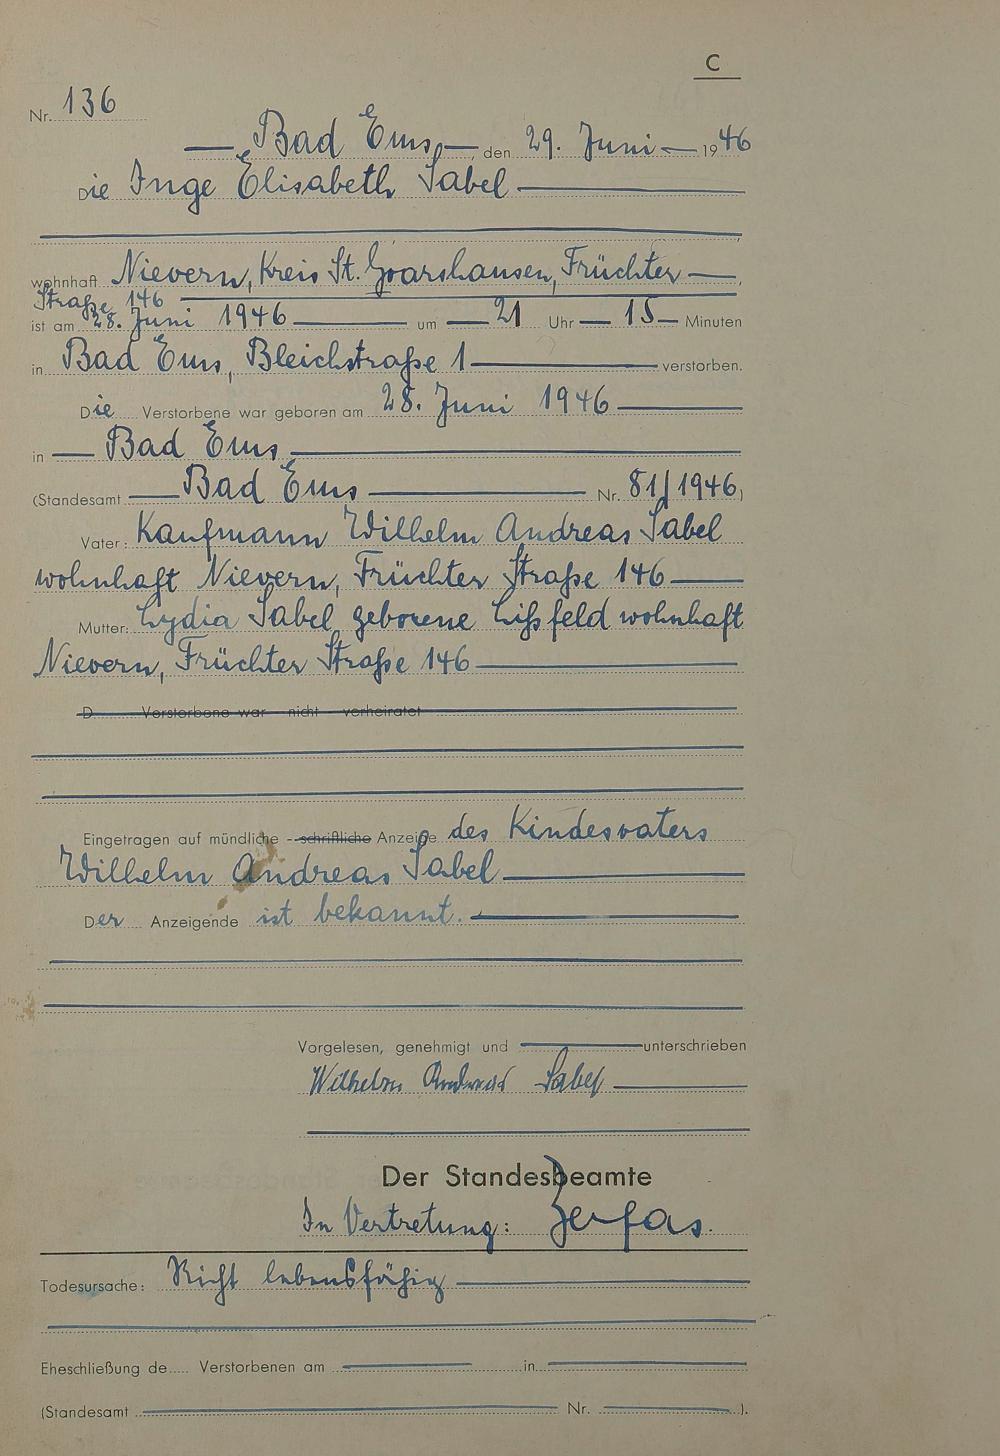 C
Nr. 136
— Bad Ems, — den 29. Juni — 1946
Die Inge Elisabeth Sabel —
wohnhaft Nievern, Kreis St. Goarshausen, Früchter —
Straße 146 —
ist am 28. Juni 1946 — um — 21 Uhr — 15 — Minuten
in Bad Ems, Bleichstraße 1 — verstorben.
Die Verstorbene war geboren am 28. Juni 1946 —
in — Bad Ems —
(Standesamt — Bad Ems — Nr. 81/1946)
Vater: Kaufmann Wilhelm Andreas Sabel
wohnhaft Nievern, Früchter Straße 146 —
Mutter: Lydia Sabel geborene Lißfeld wohnhaft
Nievern, Früchter Straße 146 —
D Verstorbene war nicht verheiratet
Eingetragen auf mündliche - schriftliche Anzeige des Kindesvaters
Wilhelm Andreas Sabel —
Der Anzeigende ist bekannt. —
Vorgelesen, genehmigt und — unterschrieben
Wilhelm Andreas Sabel —
Der Standesbeamte
In Vertretung: Zerfas.
Todesursache: Nicht lebensfähig —
Eheschließung de..... Verstorbenen am — in —
(Standesamt — Nr. — ).